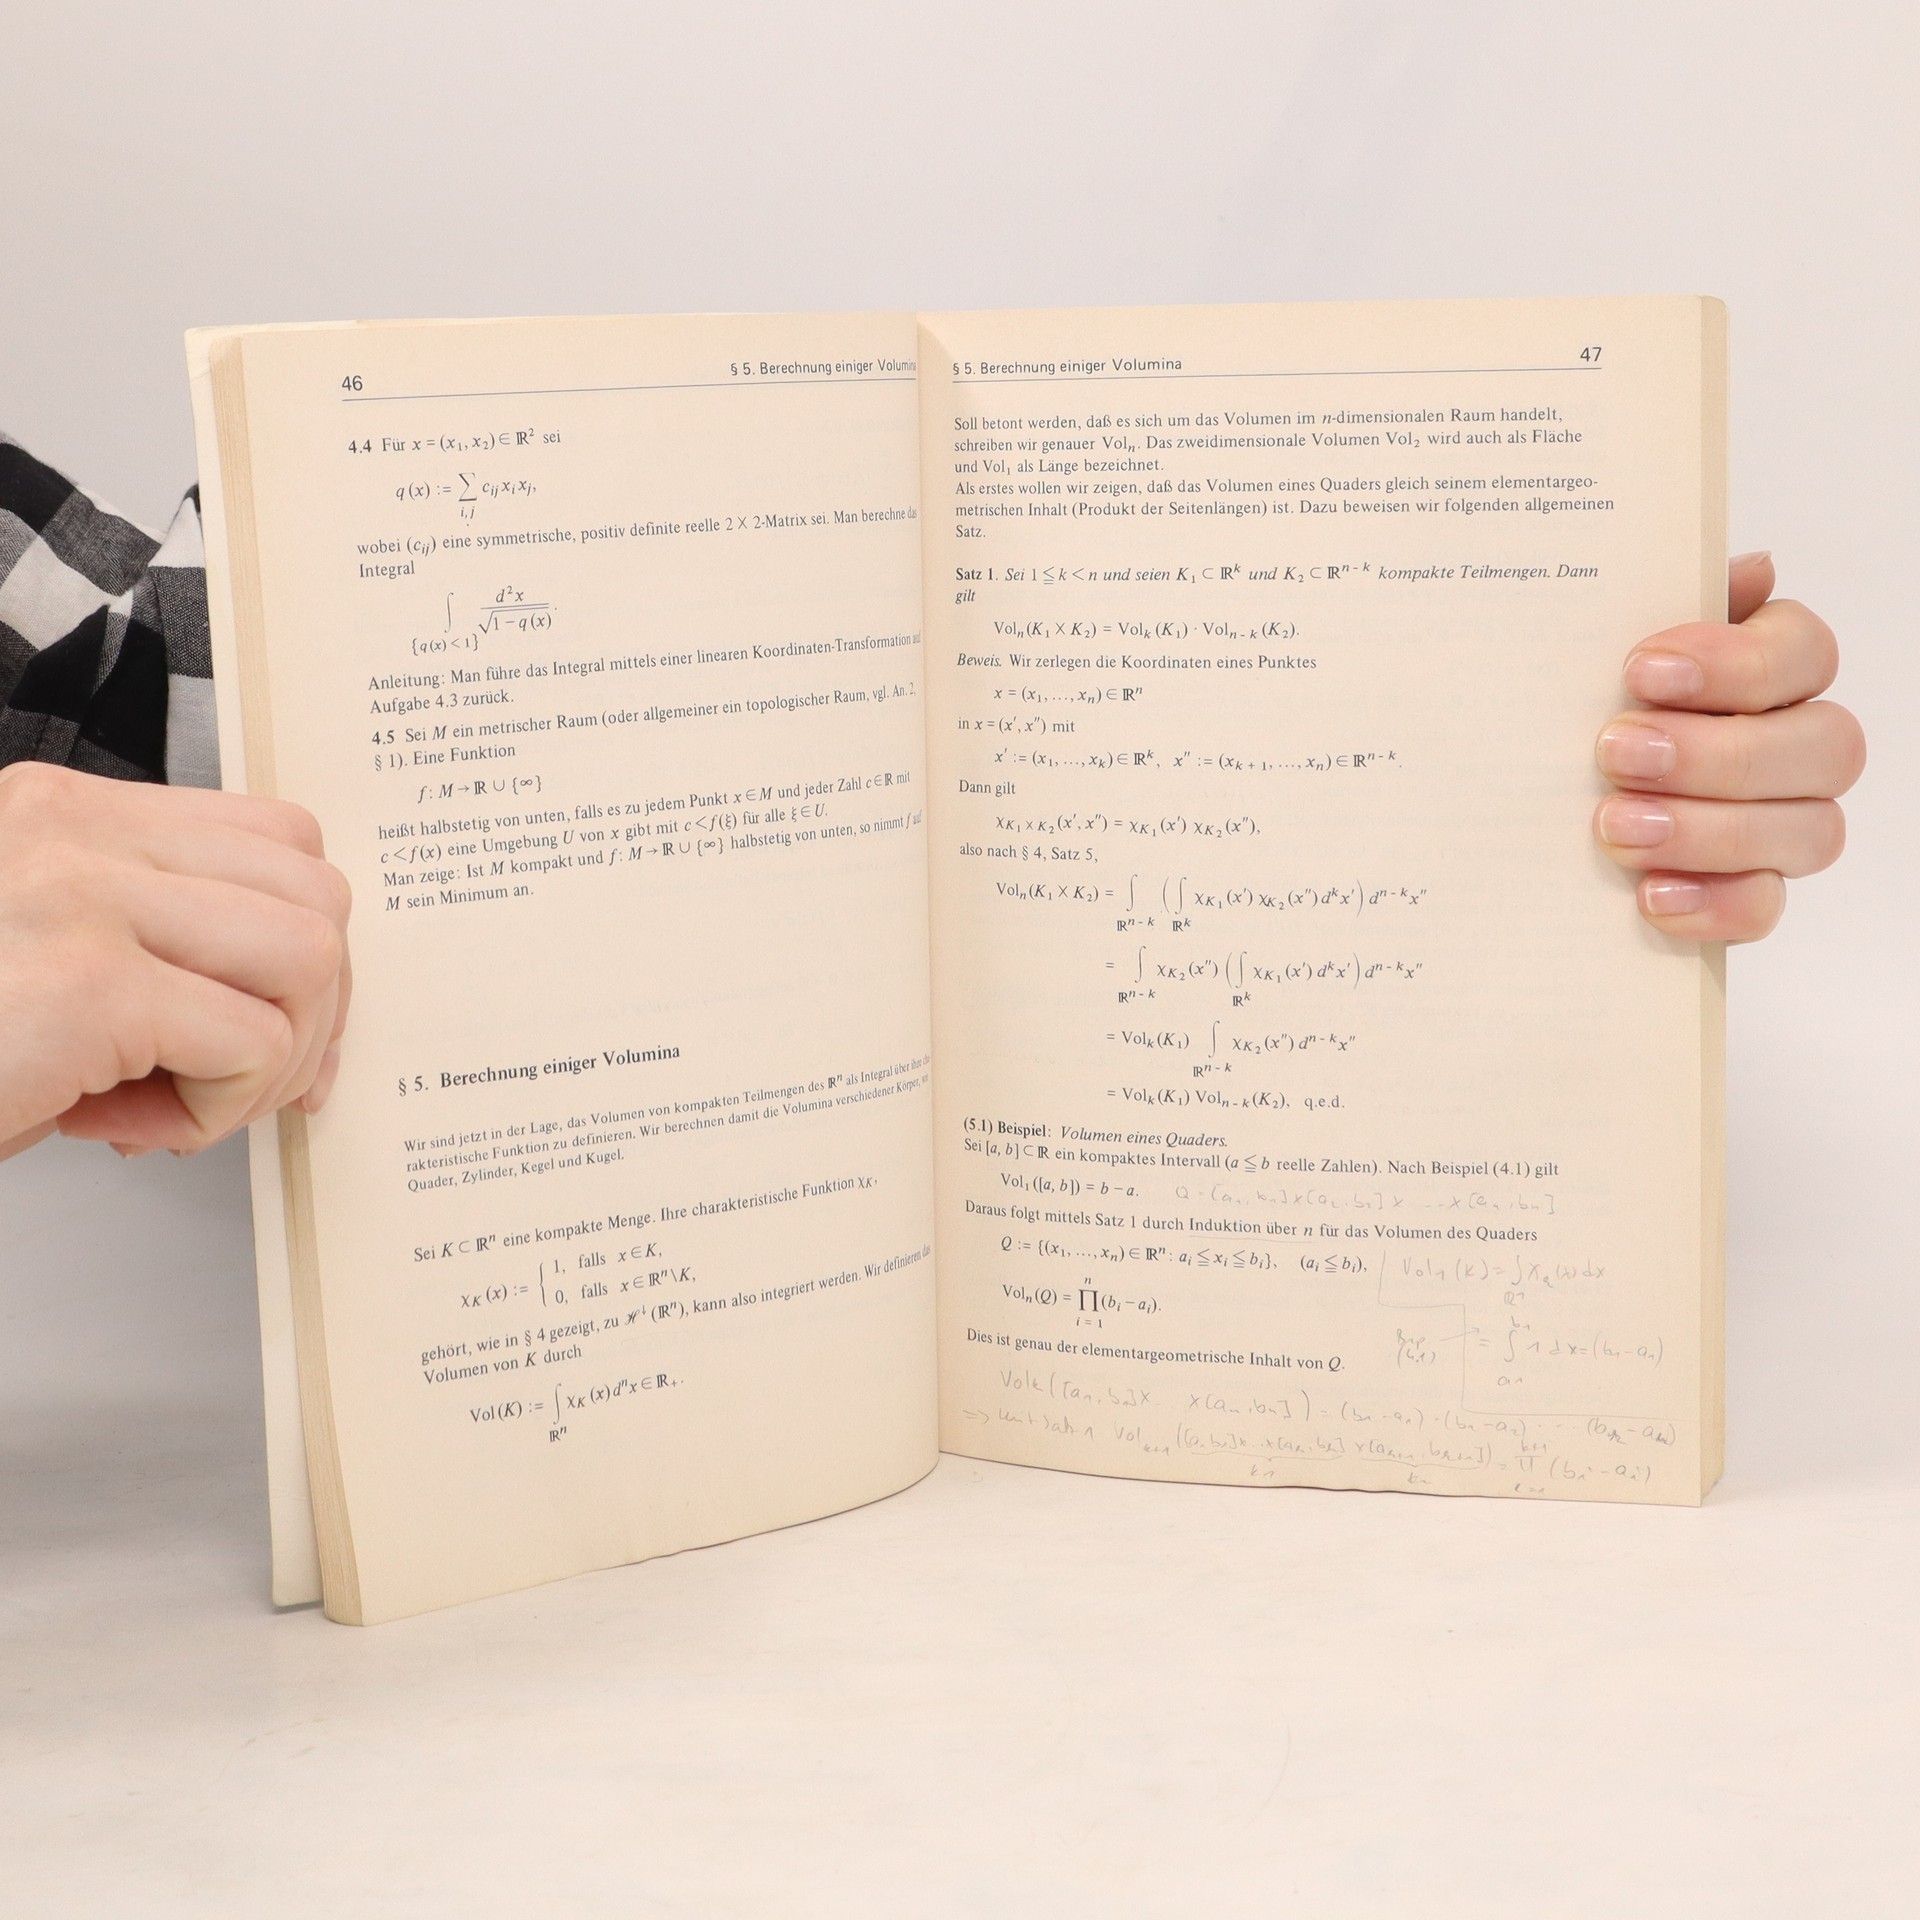 46
§ 5. Berechnung einiger Volumina
4.4 Für x = (x₁, x₂) ∈ ℝ² sei
q(x) := ∑ c_{ij} x_i x_j,
i, j
wobei (c_{ij}) eine symmetrische, positiv definite reelle 2 × 2-Matrix sei. Man berechne das
Integral
∫_{{q(x) < 1}} d²x / √(1 − q(x)).
Anleitung: Man führe das Integral mittels einer linearen Koordinaten-Transformation auf
Aufgabe 4.3 zurück.
4.5 Sei M ein metrischer Raum (oder allgemeiner ein topologischer Raum, vgl. An. 2,
§ 1). Eine Funktion
f : M → ℝ ∪ {∞}
heißt halbstetig von unten, falls es zu jedem Punkt x ∈ M und jeder Zahl c ∈ ℝ mit
c < f(x) eine Umgebung U von x gibt mit c < f(ξ) für alle ξ ∈ U.
Man zeige: Ist M kompakt und f : M → ℝ ∪ {∞} halbstetig von unten, so nimmt f auf
M sein Minimum an.
§ 5. Berechnung einiger Volumina
Wir sind jetzt in der Lage, das Volumen von kompakten Teilmengen des ℝⁿ als Integral über ihre cha
rakteristische Funktion zu definieren. Wir berechnen damit die Volumina verschiedener Körper,
Quader, Zylinder, Kegel und Kugel.
Sei K ⊂ ℝⁿ eine kompakte Menge. Ihre charakteristische Funktion χ_K,
χ_K(x) := { 1, falls x ∈ K,
0, falls x ∈ ℝⁿ\K,
gehört, wie in § 4 gezeigt, zu ℋ↓(ℝⁿ), kann also integriert werden. Wir definieren das
Volumen von K durch
Vol(K) := ∫_{ℝⁿ} χ_K(x) dⁿx ∈ ℝ₊.
§ 5. Berechnung einiger Volumina
47
Soll betont werden, daß es sich um das Volumen im n-dimensionalen Raum handelt,
schreiben wir genauer Vol_n. Das zweidimensionale Volumen Vol₂ wird auch als Fläche
und Vol₁ als Länge bezeichnet.
Als erstes wollen wir zeigen, daß das Volumen eines Quaders gleich seinem elementargeo-
metrischen Inhalt (Produkt der Seitenlängen) ist. Dazu beweisen wir folgenden allgemeinen
Satz.
Satz 1. Sei 1 ≦ k < n und seien K₁ ⊂ ℝᵏ und K₂ ⊂ ℝⁿ⁻ᵏ kompakte Teilmengen. Dann
gilt
Vol_n(K₁ × K₂) = Vol_k(K₁) · Vol_{n-k}(K₂).
Beweis. Wir zerlegen die Koordinaten eines Punktes
x = (x₁, ..., x_n) ∈ ℝⁿ
in x = (x′, x″) mit
x′ := (x₁, ..., x_k) ∈ ℝᵏ, x″ := (x_{k+1}, ..., x_n) ∈ ℝⁿ⁻ᵏ.
Dann gilt
χ_{K₁×K₂}(x′, x″) = χ_{K₁}(x′) χ_{K₂}(x″),
also nach § 4, Satz 5,
Vol_n(K₁ × K₂) = ∫_{ℝⁿ⁻ᵏ} (∫_{ℝᵏ} χ_{K₁}(x′) χ_{K₂}(x″) dᵏx′) dⁿ⁻ᵏx″
= ∫_{ℝⁿ⁻ᵏ} χ_{K₂}(x″) (∫_{ℝᵏ} χ_{K₁}(x′) dᵏx′) dⁿ⁻ᵏx″
= Vol_k(K₁) ∫_{ℝⁿ⁻ᵏ} χ_{K₂}(x″) dⁿ⁻ᵏx″
= Vol_k(K₁) Vol_{n-k}(K₂), q.e.d.
(5.1) Beispiel: Volumen eines Quaders.
Sei [a, b] ⊂ ℝ ein kompaktes Intervall (a ≦ b reelle Zahlen). Nach Beispiel (4.1) gilt
Vol₁([a, b]) = b − a. Q = [a₁, b₁] × [a₂, b₂] × ... × [a_n, b_n]
Daraus folgt mittels Satz 1 durch Induktion über n für das Volumen des Quaders
Q := {(x₁, ..., x_n) ∈ ℝⁿ : a_i ≦ x_i ≦ b_i}, (a_i ≦ b_i),
Vol₁(K) = ∫ χ_Q(x) dx
Vol_n(Q) = ∏_{i=1}^{n} (b_i − a_i).
Bsp (4.1) = ∫_{a₁}^{b₁} 1 dx = (b₁ − a₁)
Dies ist genau der elementargeometrische Inhalt von Q.
Vol_k([a₁, b₁] × ... × [a_n, b_n]) = (b₁ − a₁) · (b₂ − a₂) · ...
⇒ mit Satz 1 Vol_{k+1} = ∏_{i=1}^{k+1} (b_i − a_i)